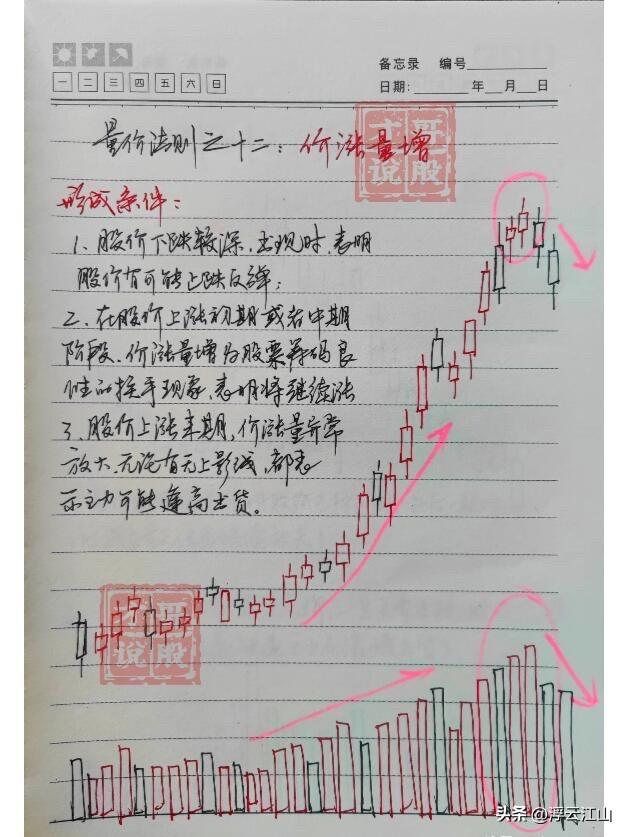 备忘录 编号
一 二 三 四 五 六 日
日期: 年 月 日
量价法则之十二：价涨量增
哥说股
形成条件：
1、股价下跌较深，出现时，表明
股价有可能止跌反弹；
2、在股价上涨初期或者中期
阶段、价涨量增为股票筹码良
性的换手现象，表明将继续涨
3、股价上涨末期，价涨量异常
放大，无论有无上影线，都表
示主力可能逢高出货。
哥说股
头条@浮云江山